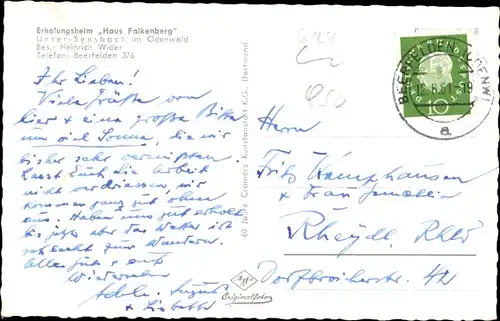 Erholungsheim „Haus Falkenberg"
Unter-Sensbach im Odenwald
Bes.: Heinrich Wider
Telefon: Beerfelden 376
Ihr Lieben!
Viele Grüße von
hier + eine große Bitte
um viel Sonne, die wir
bisher sehr vermißten.
Lasst Euch die Arbeit
nicht verdriessen, wir
kommen ganz gut ohne
aus. Haben uns gut erholt
bis jetzt aber das Wetter ist
schlecht zum Wandern.
Alles Gute + auf
Wiedersehen
August
+ Lisbeth
60 Jahre Cramers Kunstanstalt K.G., Dortmund
BEERFELDEN (ODENW)
12.6.61.-19
a
10
Herrn
Fritz Kamphausen
+ Frau Gemahlin
Rheydt, Rhld
Dorfbroicherstr. 42
Agfa
Originalfoto